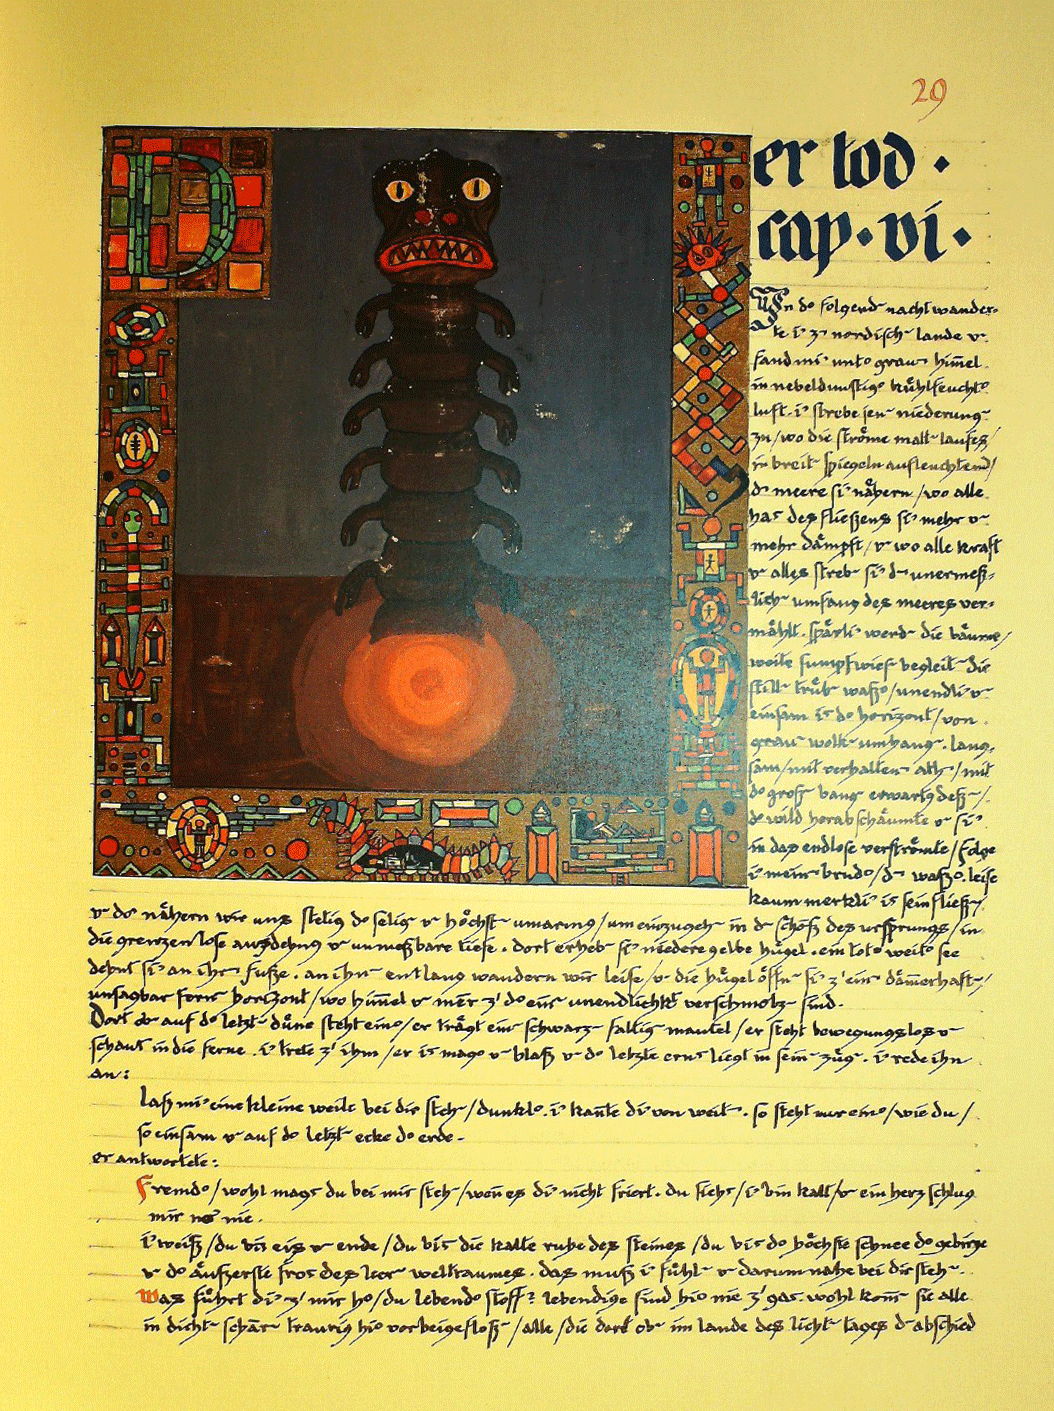 29
Der tod .
cap . vi .
In do folgend nacht wander-
te i' z' nordisch lande v
fand mi' unto grau him̄el
in nebeldunstigo kühlfeuchto
luft . i' strebe jen niederung
zu / wo die ströme matt laufes /
in breit spiegeln aufleuchtend /
d' meere si' nähern / wo alle
has des fließens si' mehr v
mehr dämpft / v wo alle kraft
v alles streb si' d' unermeß-
lich umfang des meeres ver-
mählt . spärli' werd die bäume /
weite sumpfwies begleit die
still trüb waßo / unendli' v
einsam is do horizont / von
grau wolk umhang . lang-
sam / mit verhalten ath / mit
do groß bang erwartg deß /
d' wild herabschäumte v si'
in das endlose verströmte / folge
i' mein brudo / d' waßo . leise
kaum merkli' is sein fließ /
v do' nähern wir uns stetig do selig v höchst umarmg / um einzugeh in d' schoß des ursprungs / in
die grenzenlose ausdehng v unmeßbare tiefe . dort erheb si' niedere gelbe hügel . ein toto weito see
dehnt si' an ihr fuße . an ihn entlang wandern wir leise / v die hügel öffn si' z' ein däm̄erhaft /
unsagbar fern horizont / wo him̄el v meer z' do ein unendlichkt verschmolz sind .
Dort ob auf do letzt düne steht eino / er trägt ein schwarz faltig mantel / er steht bewegungslos v
schaut in die ferne . i' trete z' ihm / er is mago v blaß v do letzte ernst liegt in sein züg . i' rede ihn
an :
laß mi' eine kleine weile bei dir steh / dunklo . i' kan̄te di' von weit . so steht nur eino / wie du /
so einsam v auf do letzt ecke do erde .
er antwortete :
Fremdo / wohl mags du bei mir steh / wen̄ es di' nicht friert . du siehs / i' bin kalt / v ein herz schlug
mir no' nie .
i' weiß / du bis eis v ende / du bis die kalte ruhe des steines / du bis do höchste schnee do gebirge
v do äußerste fros des leer weltraumes . das muß i' fühl v darum nahe bei dir steh .
Was führt di' z' mir ho / du lebendo stoff ? lebendige sind hio nie z' gas . wohl kom̄ sie alle
in dicht schar traurig hio vorbeigefloß / alle / die dort ob im lande des licht tages d' abschied